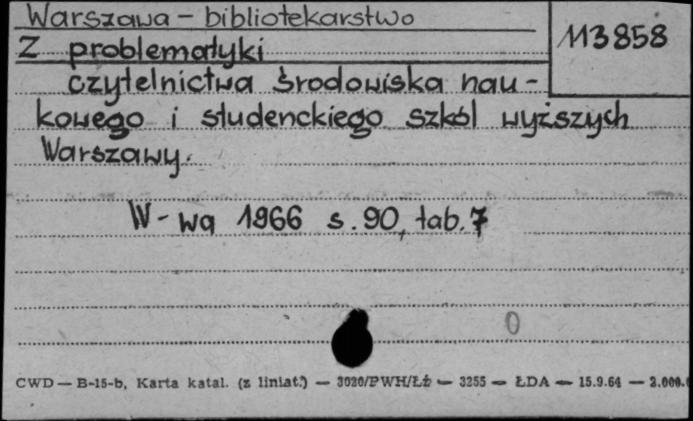 Warszawa - bibliotekarstwo
113858
Z problematyki
czytelnictwa środowiska nau-
kowego i studenckiego szkół wyższych
Warszawy.
W-wa 1966 s. 90, tab. 7
0
CWD — B-15-b, Karta katal. (z liniat.) — 3020/PWH/Łż — 3255 — ŁDA — 15.9.64 —